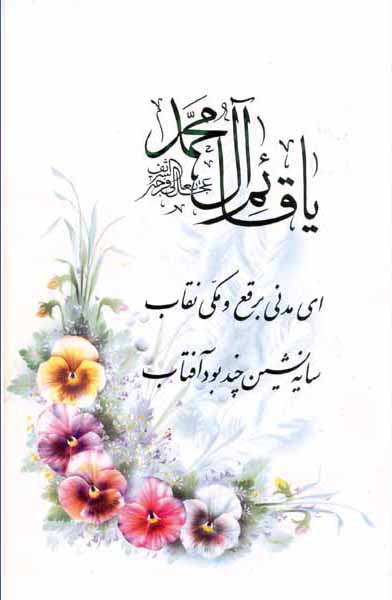 یا قائم آل محمد
عجل الله تعالی فرجه الشریف
ای مدنی برقع و مکی نقاب
سایه نشین چند بود آفتاب